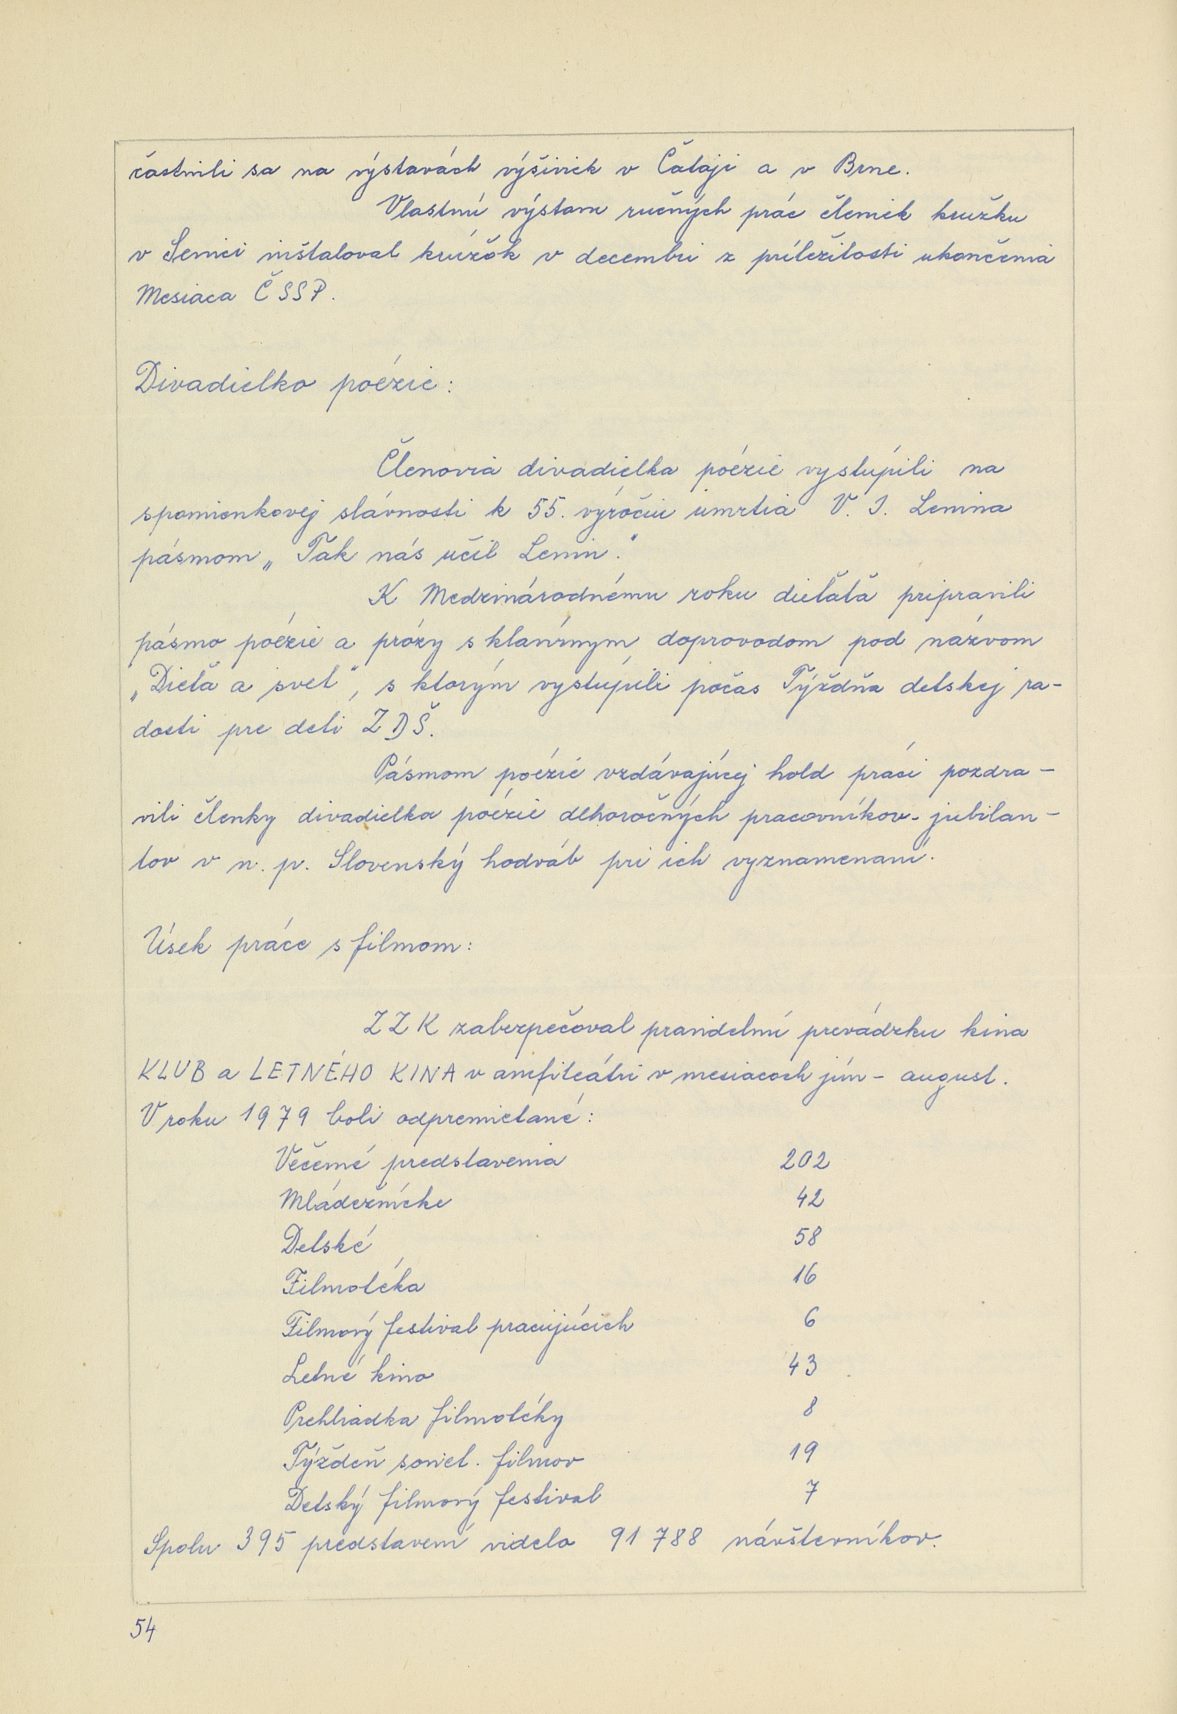 častnili sa na výstavách výšiviek v Čataji a v Brne.
Vlastnú výstavu ručných prác členiek krúžku
v Senici inštaloval krúžok v decembri z príležitosti ukončenia
Mesiaca ČSSP.
Divadielko poézie:
Členovia divadielka poézie vystúpili na
spomienkovej slávnosti k 55. výročiu úmrtia V. I. Lenina
pásmom „Tak nás učil Lenin."
K Medzinárodnému roku dieťaťa pripravili
pásmo poézie a prózy s klavírnym doprovodom pod názvom
„Dieťa a svet", s ktorým vystúpili počas Týždňa detskej ra-
dosti pre deti ZDŠ.
Pásmom poézie vzdávajúcej hold práci pozdra-
vili členky divadielka poézie dlhoročných pracovníkov - jubilan-
tov v n. p. Slovenský hodváb pri ich vyznamenaní.
Úsek práce s filmom:
ZZK zabezpečoval pravidelnú prevádzku kina
KLUB a LETNÉHO KINA v amfiteátri v mesiacoch jún - august.
V roku 1979 boli odpremietané:
Večerné predstavenia 202
Mládežnícke 42
Detské 58
Filmotéka 16
Filmový festival pracujúcich 6
Letné kino 43
Prehliadka filmotéky 8
Týždeň soviet. filmov 19
Detský filmový festival 7
Spolu 395 predstavení videlo 91 788 návštevníkov.
54